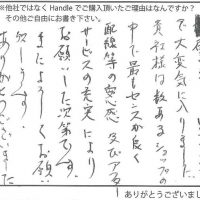 ※他社ではなくHandleでご購入頂いたご理由はなんですか？
その他ご自由にお書き下さい。
で大変気に入りました
貴社様は数あるショップの
中で最もセンスが良く
配線等の
及び
サービスの充実により
お願いした次第です。
またよろしくお願い
致します。
ありがとうございました
ありがとうございまし